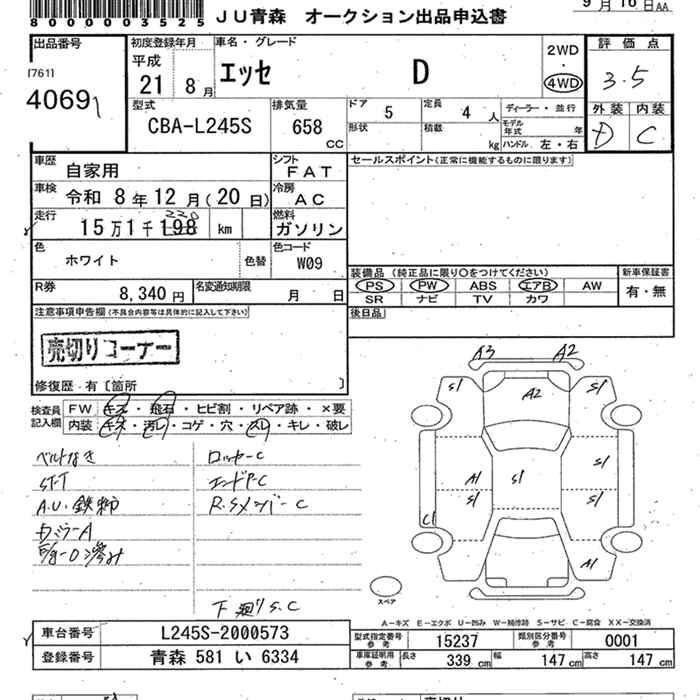 80000003525 JU青森 オークション出品申込書 9月16日AA
出品番号 初度登録年月 車名・グレード 2WD・4WD 評価点
[761] 平成 エッセ D 3.5
4069 21 8月 外装 内装
型式 排気量 ドア 5 定員 4人 ディーラー・並行 D C
CBA-L245S 658 CC 形状 積載 kg モデル年式 年 ハンドル 左・右
車歴 自家用 シフト FAT セールスポイント(正常に機能するものに限ります)
車検 令和 8年 12月(20日) 冷房 AC
走行 15万1千198 220 km 燃料 ガソリン
色 ホワイト 色替 色コード W09
装備品(純正品に限り○をつけてください) 新車保証書
R券 8,340円 名変通知期限 月 日 PS PW ABS エアB AW 有・無
SR ナビ TV カワ
注意事項申告欄(不具合内容等は具体的に記入して下さい) 後日品
売切りコーナー
修復歴・有〔箇所 〕
検査員記入欄 FW キズ・飛石・ヒビ割・リペア跡・×要
内装 キズ・汚レ・コゲ・穴・スレ・キレ・破レ
ベルトなき ロッカーC
ST-T エンドP.C
A.U.鉄粉 R.SメンバーC
カミラーA
下廻りS.C
A3 A2
S1 A2 S1
A1 S1 S1
S1 S1
C1
A1
スペア
A-キズ E-エクボ U-凹み W-補修跡 S-サビ C-腐食 XX-交換済
車台番号 L245S-2000573 型式指定番号 参考 15237 類別区分番号 参考 0001
登録番号 青森 581 い 6334 車庫証明用 参考 長さ 339cm 幅 147cm 高さ 147cm